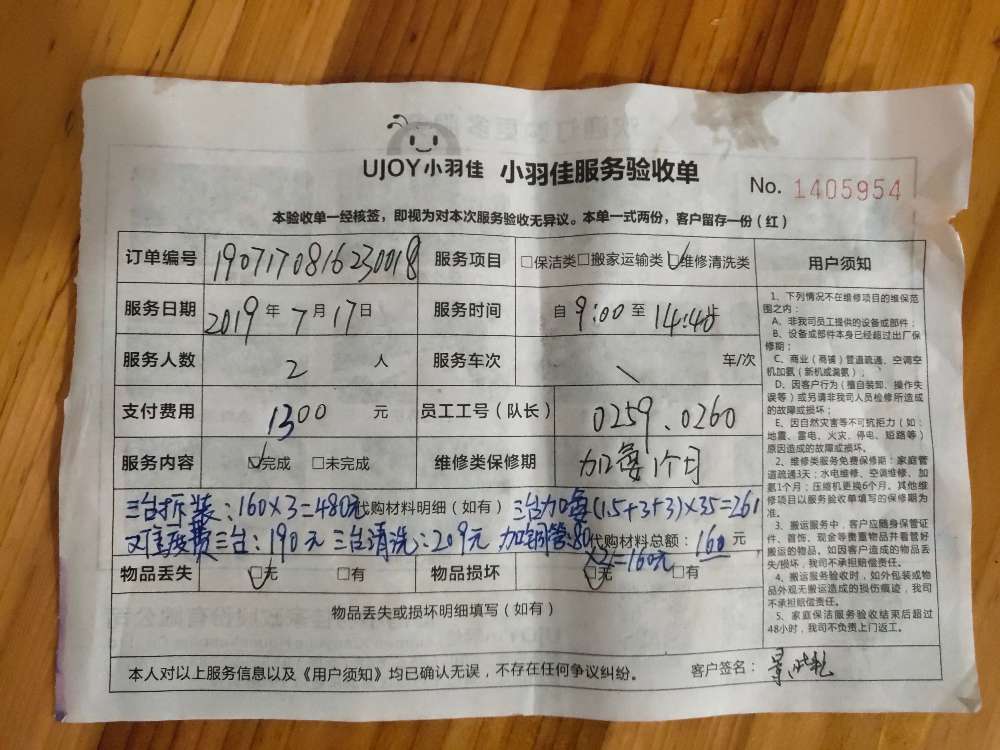 UJOY小羽佳 小羽佳服务验收单 No. 1405954
本验收单一经核签，即视为对本次服务验收无异议。本单一式两份，客户留存一份（红）
订单编号 1907170816230018 服务项目 □保洁类□搬家运输类☑维修清洗类
服务日期 2019年7月17日 服务时间 自9:00至14:40
服务人数 2人 服务车次 \ 车/次
支付费用 1300元 员工工号（队长） 0259.0260
服务内容 ☑完成 □未完成 维修类保修期 1个月
三台拆装:160×3=480元 代购材料明细（如有） 三台加(1.5+3+3)×35=261
费三台:190元 三台清洗:209元 加铜管:80×2=160元 代购材料总额：160元
物品丢失 ☑无 □有 物品损坏 ☑无 □有
物品丢失或损坏明细填写（如有）
本人对以上服务信息以及《用户须知》均已确认无误，不存在任何争议纠纷。 客户签名：
用户须知
1、下列情况不在维修项目的维保范
围之内：
A、非我司员工提供的设备或部件；
B、设备或部件本身已经超过出厂保
修期；
C、商业（商铺）管道疏通、空调空
机加氨（新机或漏氨）；
D、因客户行为（擅自装卸、操作失
误等）或另请非我司人员检修所造成
的故障或损坏；
E、因自然灾害等不可抗拒力（如：
地震、雷电、火灾、停电、短路等）
原因造成的故障或损坏。
2、维修类服务免费保修期：家庭管
道疏通3天；水电维修、空调维修、加
氨1个月；压缩机更换6个月。其他维
修项目以服务验收单填写的保修期为
准。
3、搬运服务中，客户应随身保管证
件、首饰、现金等贵重物品并看管好
搬运的物品。如因客户造成的物品丢
失/损坏，我司不承担赔偿责任。
4、搬运服务验收时，如外包装或物
品外观无搬运造成的损伤痕迹，我司
不承担赔偿责任。
5、家庭保洁服务验收结束后超过
48小时，我司不负责上门返工。